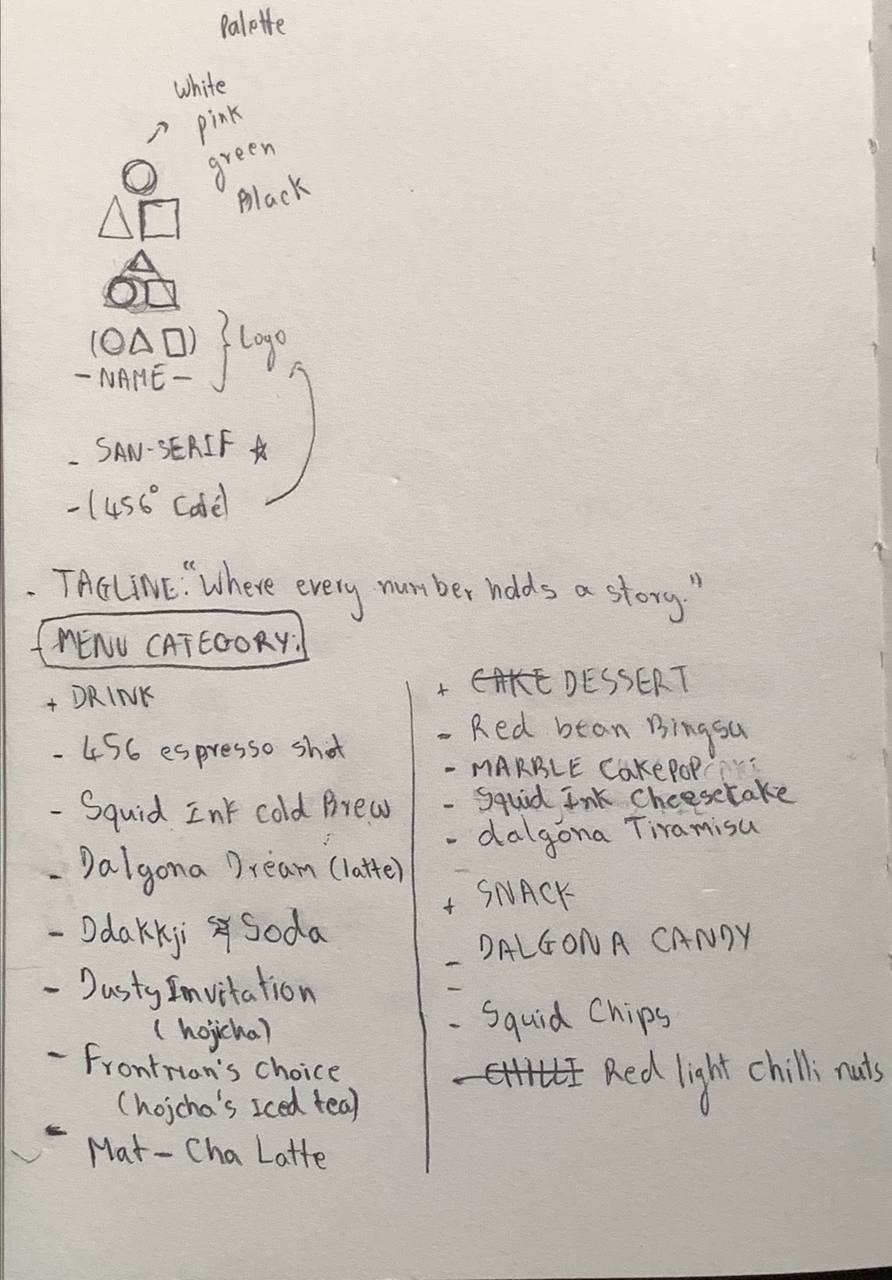 Palette
White
pink
green
Black
(○△□) } Logo
- NAME -
- SAN-SERIF ☆
- (456° Café)
- TAGLINE: "Where every number holds a story."
- MENU CATEGORY:
+ DRINK
- 456 espresso shot
- Squid Ink cold Brew
- Dalgona Dream (latte)
- Ddakkji Soda
- Dusty Invitation
(hojicha)
- Frontman's choice
(hojcha's Iced tea)
- Mat-Cha Latte
+ CAKE DESSERT
- Red bean Bingsu
- MARBLE CakePOP
- Squid Ink Cheesecake
- dalgona Tiramisu
+ SNACK
- DALGONA CANDY
-
- Squid Chips
- CHILLI Red light chilli nuts